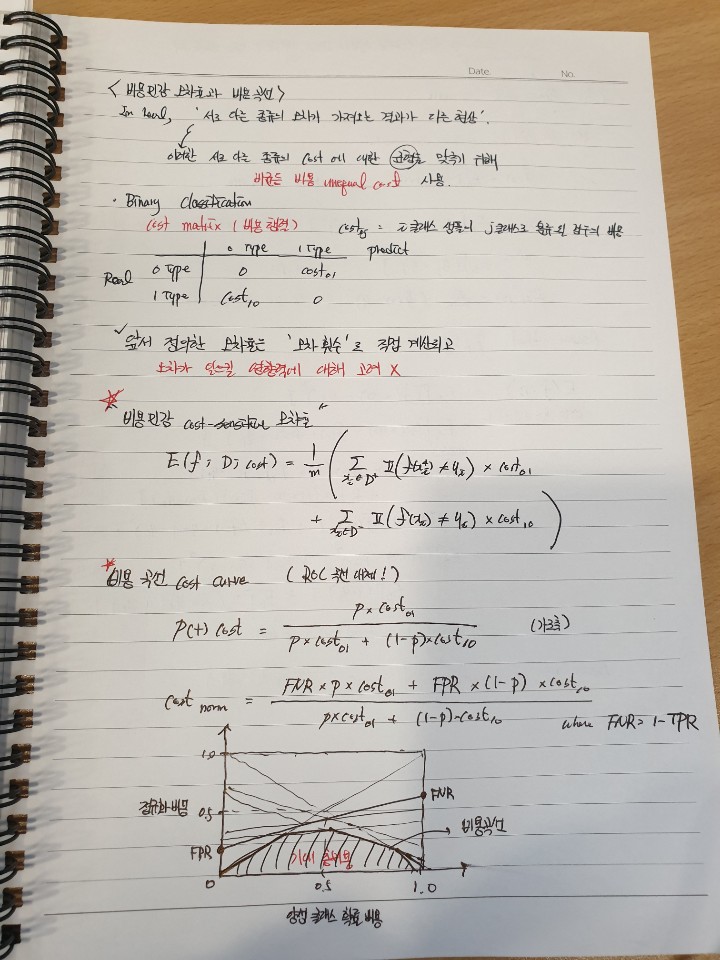 Date. No.
< 비용민감 오차율과 비용 곡선 >
In Real, '서로 다른 종류의 오차가 가져오는 결과가 다른 현상'.
이러한 서로 다른 종류의 cost에 대한 균형을 맞추기 위해
비균등 비용 unequal cost 사용.
· Binary Classification
Cost matrix (비용 행렬) cost_ij = i클래스 샘플이 j클래스로 분류된 경우의 비용
0 Type 1 Type predict
Real 0 Type 0 cost_01
1 Type cost_10 0
✓ 앞서 정의한 오차율은 '오차 횟수'로 직접 계산되고
오차가 일으킬 영향력에 대해 고려 X
☆ 비용민감 cost-sensitive 오차율"
E(f; D; cost) = 1/m ( Σ_{x_i∈D+} 𝕀(f(x_i) ≠ y_i) × cost_01
+ Σ_{x_i∈D-} 𝕀(f(x_i) ≠ y_i) × cost_10 )
* 비용 곡선 cost curve (ROC 곡선 대체!)
P(+) cost = p × cost_01 / p × cost_01 + (1-p) × cost_10 (가로축)
cost_norm = FNR × p × cost_01 + FPR × (1-p) × cost_10 / p × cost_01 + (1-p) × cost_10 where FNR = 1 - TPR
1.0
FNR
정규화비용 0.5
비용곡선
FPR
기대 총비용
0 0.5 1.0
양성 클래스 확률 비용